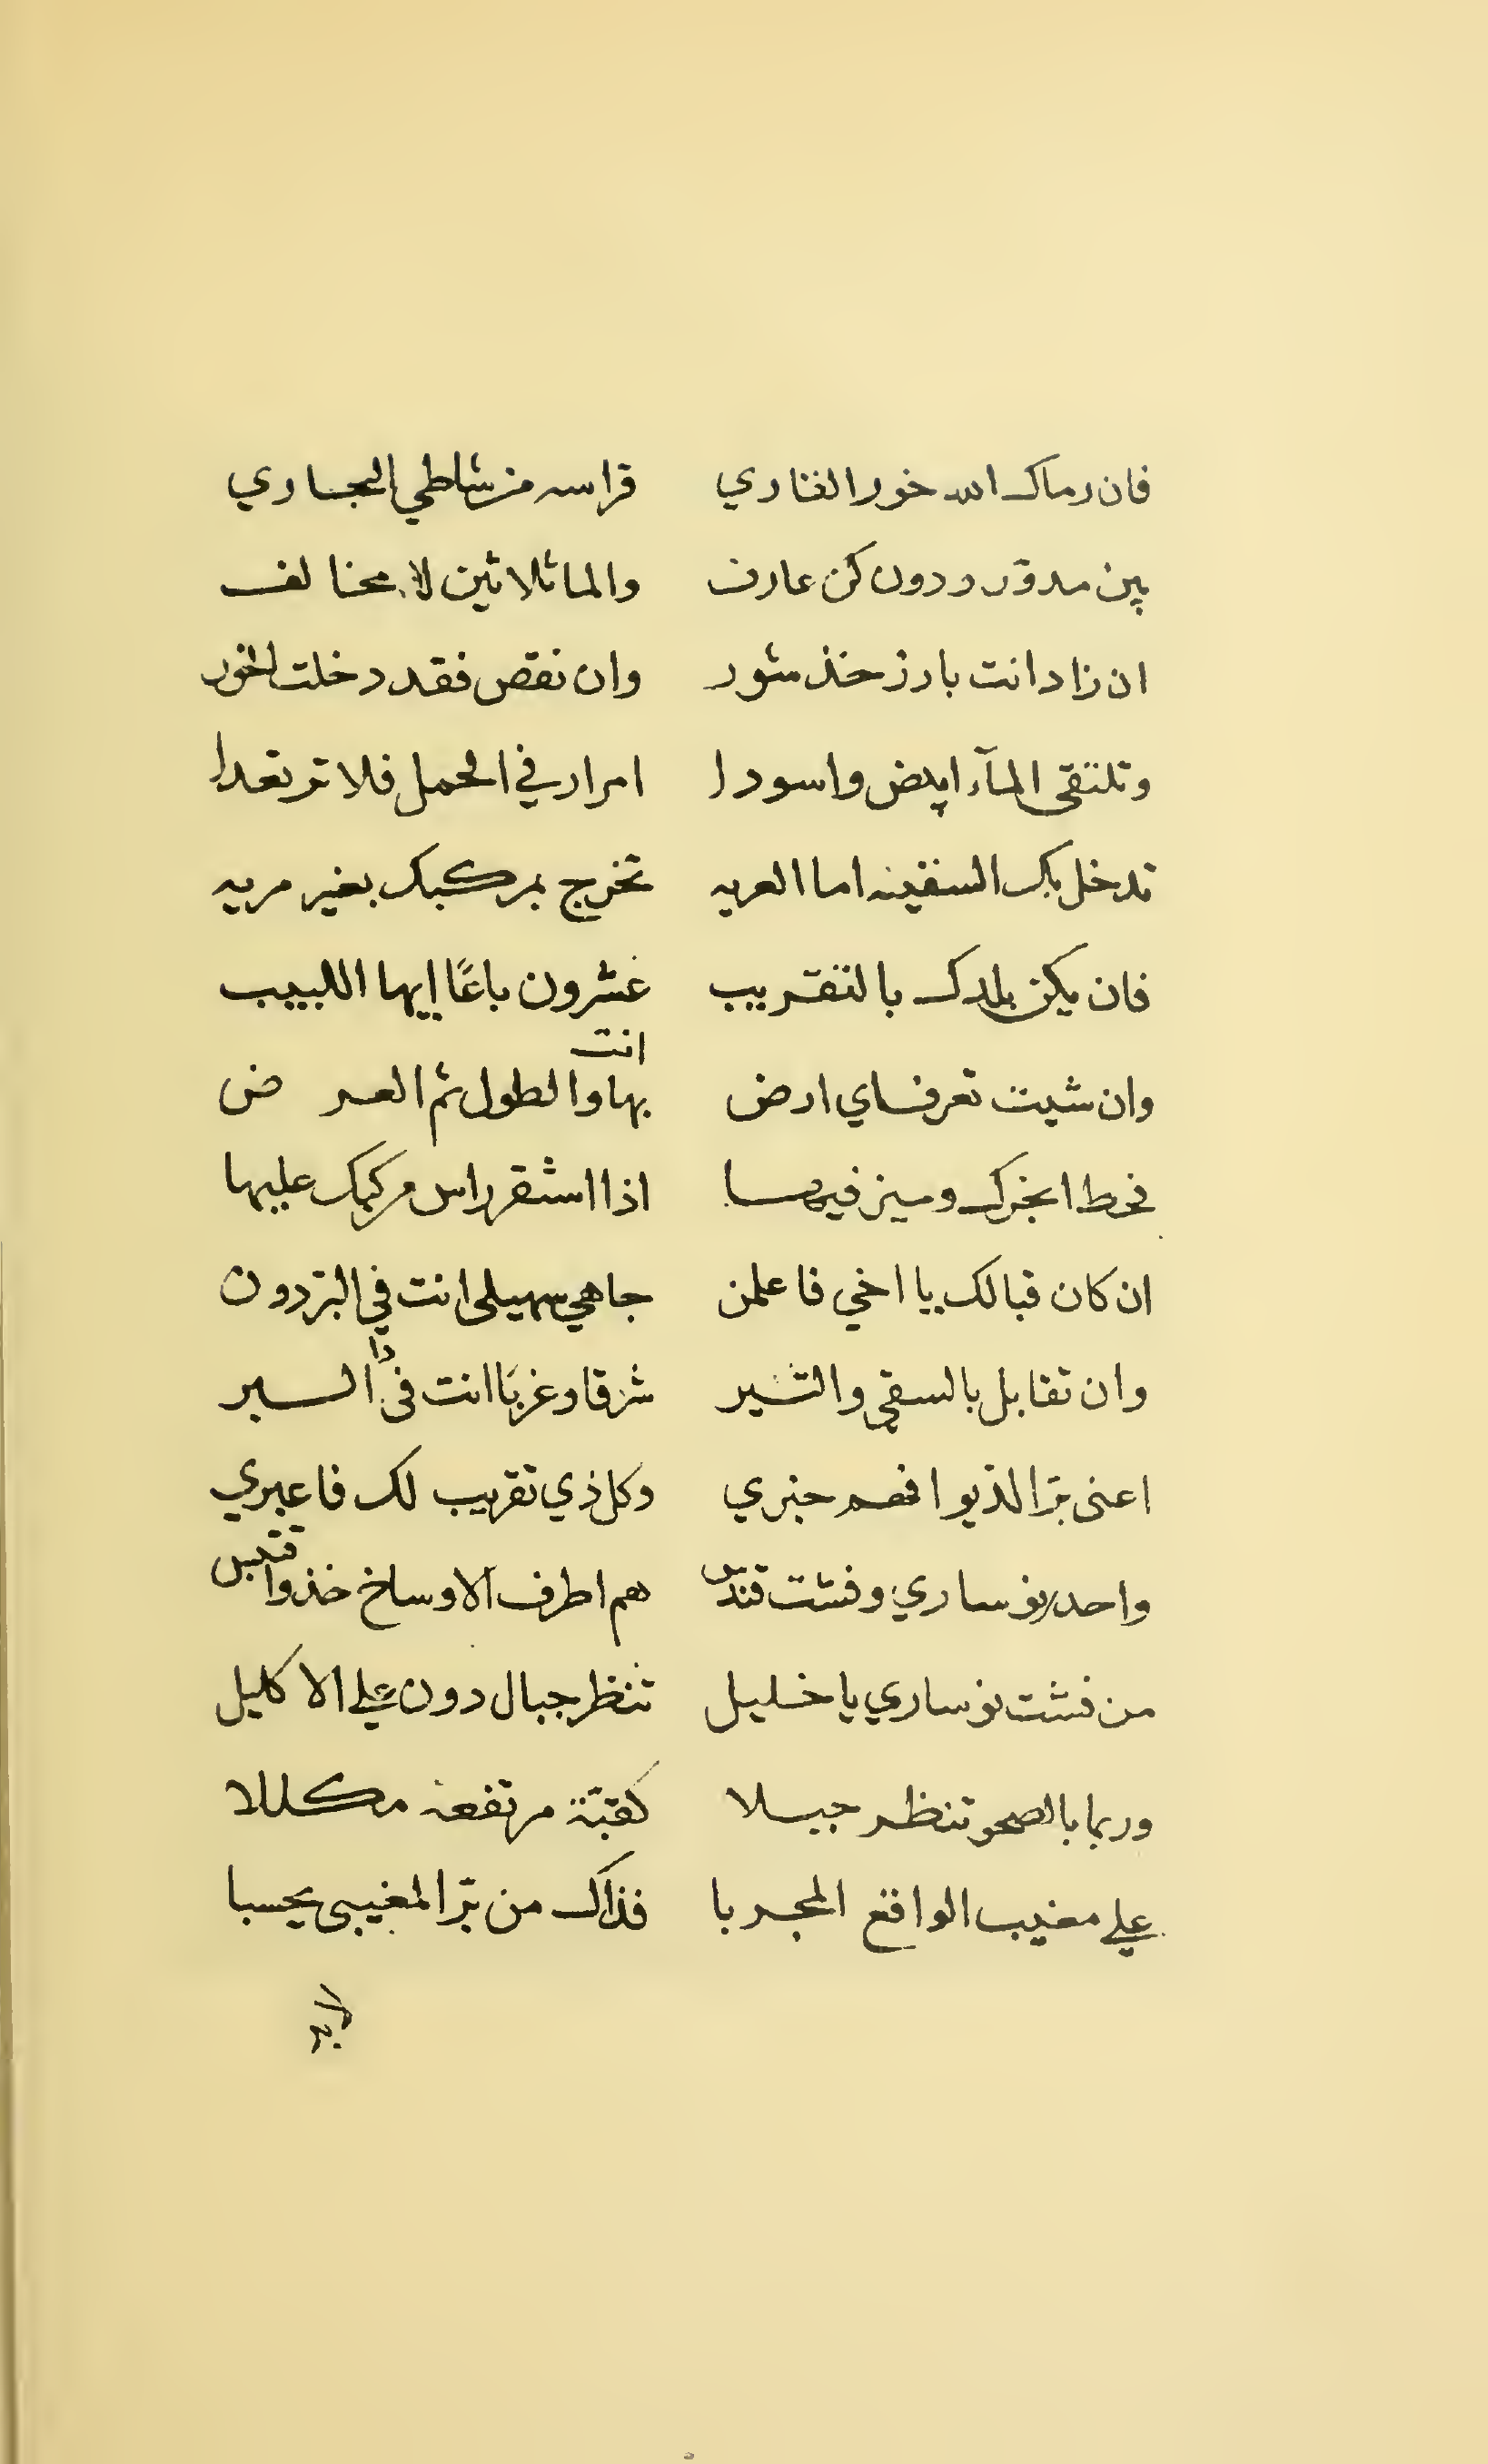 فان رماك الله خور الغاري قراسه من شاطي البحاري
بين مدور ودون كن عارف والما ثلاثين لا مخالف
ان زاد انت بارز خذ شور وان نقص فقد دخلت الخور
وتلتقى المآء ابيض واسودا امرار في الحمل فلا ترتعدا
تدخل بك السفينه اما العريه تخرج بمركبك بغير مريه
فان يكن بلدك بالتقريب عشرون باعًا ايها اللبيب
وان شيت تعرف اي ارض انت بها والطول ثم العرض
فحط انجرك وميز فيها اذا استقر راس مركبك عليها
ان كان قبالك يا اخي فاعلمن جاهي سهيلي انت في البر دون
وان تقابل بالسقي والتير شرقا وغربًا انت فى ذا السير
اعنى بر الديو افهم خبري وكل ذي تقريب لك فاعبري
واحد نوساري وفشت قندس هم اطرف الاوساخ خذ واقتبس
من فشت نوساري يا خليل تنظر جبال دون علي الاكليل
وربما بالصحو تنظر جبلا كقبة مرتفعة مكللا
علي مغيب الواقع المجربا فذاك من بر المغيبى يحسبا